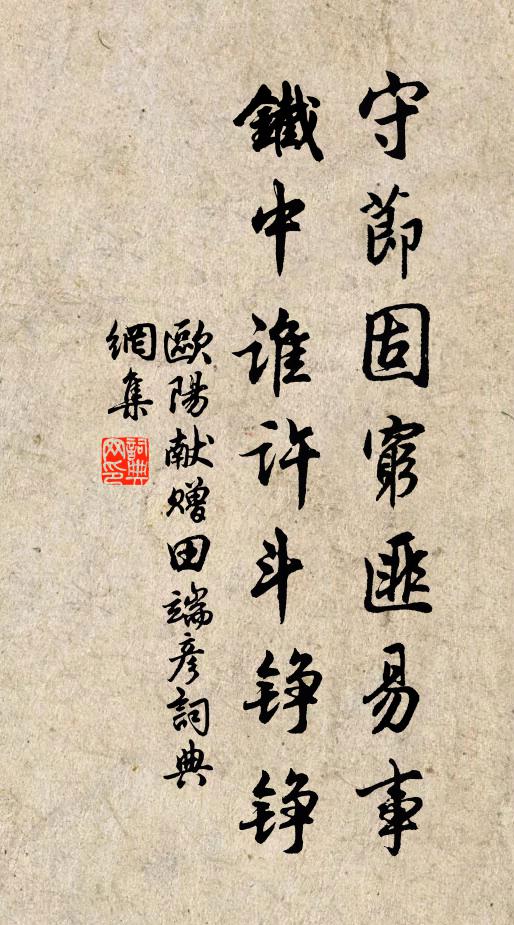 守節固窮匪易事
鐵中誰許斗铮铮
歐陽献贈田端彥詞典
網集
詞典
网印